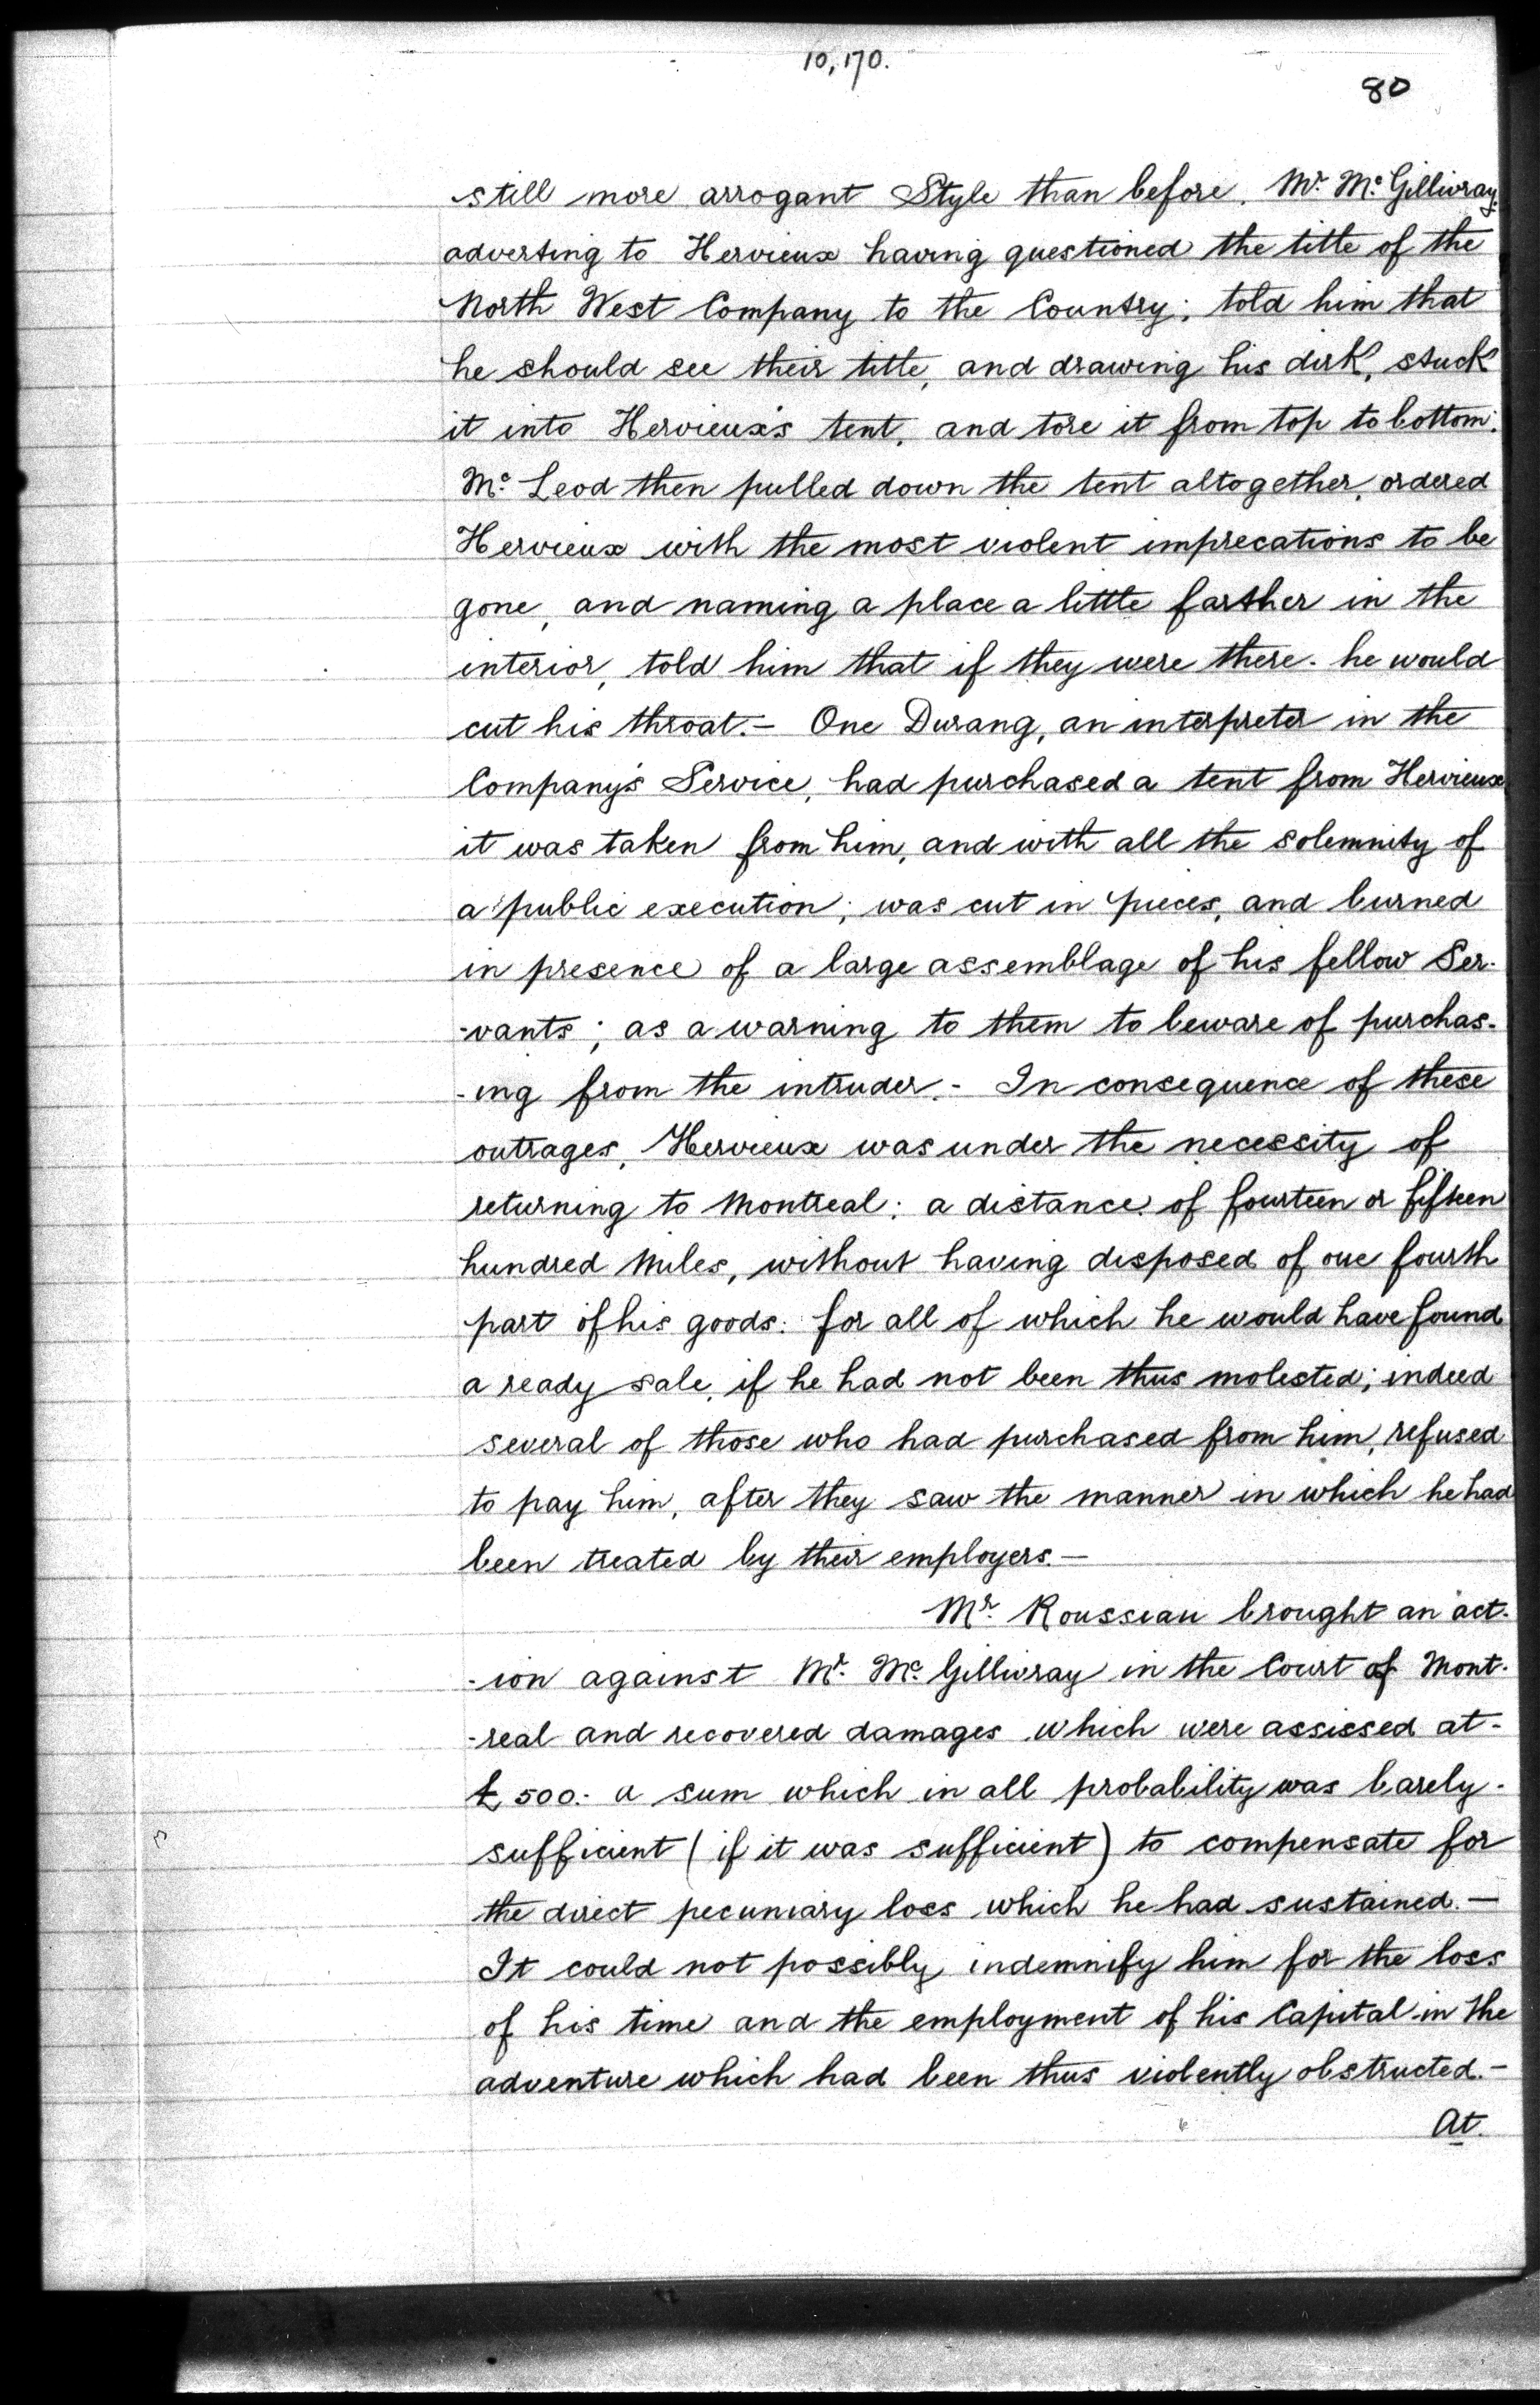 10,170.
80
still more arrogant Style than before. Mr. Mc. Gillivray,
adverting to Hervieux having questioned the title of the
North West Company to the Country; told him that
he should see their title, and drawing his dirk, stuck
it into Hervieux's tent, and tore it from top to bottom.
Mc. Leod then pulled down the tent altogether, ordered
Hervieux with the most violent imprecations to be
gone, and naming a place a little farther in the
interior, told him that if they were there. he would
cut his throat.- One Durang, an interpreter in the
Company's Service, had purchased a tent from Hervieux
it was taken from him, and with all the solemnity of
a public execution; was cut in pieces, and burned
in presence of a large assemblage of his fellow Ser-
-vants; as a warning to them to beware of purchas-
-ing from the intruder.- In consequence of these
outrages, Hervieux was under the necessity of
returning to Montreal; a distance of fourteen or fifteen
hundred Miles, without having disposed of one fourth
part of his goods: for all of which he would have found
a ready sale, if he had not been thus molested; indeed
several of those who had purchased from him, refused
to pay him, after they saw the manner in which he had
been treated by their employers.-
Mr. Rousseau brought an act-
-ion against Mr. Mc. Gillivray in the Court of Mont-
-real and recovered damages which were assissed at-
£500.- a sum which in all probability was barely-
sufficient (if it was sufficient) to compensate for
the direct pecuniary loss which he had sustained.-
It could not possibly indemnify him for the loss
of his time and the employment of his Capital in the
adventure which had been thus violently obstructed.-
At.